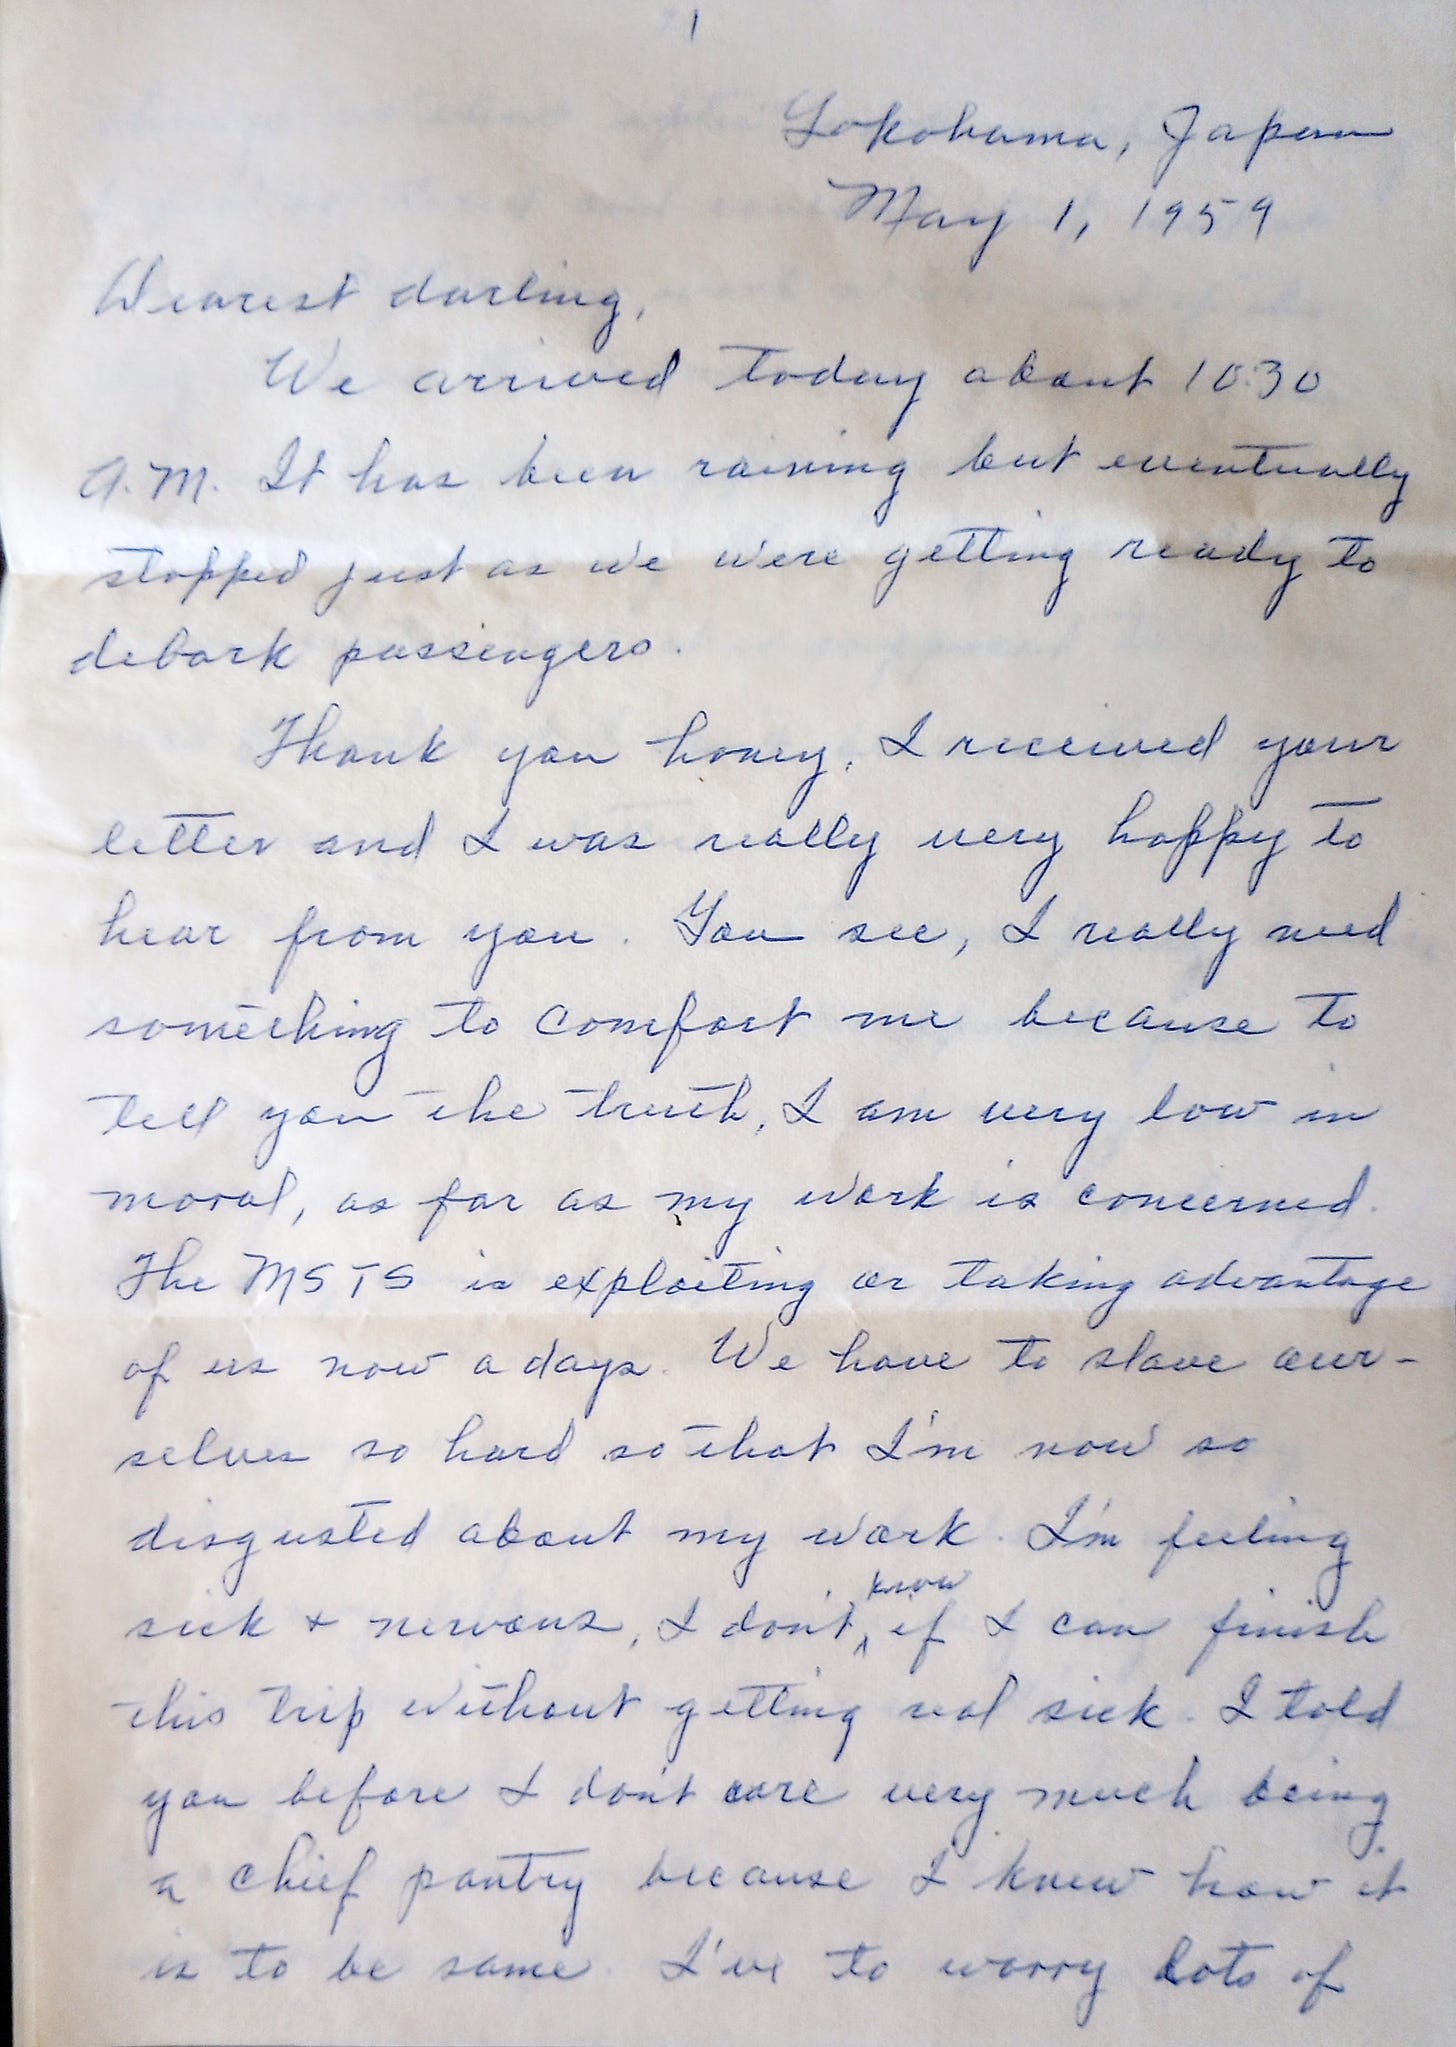 1
Yokohama, Japan
May 1, 1959
Dearest darling,
We arrived today about 10:30
A.M. It has been raining but eventually
stopped just as we were getting ready to
debark passengers.
Thank you honey, I received your
letter and I was really very happy to
hear from you. You see, I really need
something to comfort me because to
tell you the truth, I am very low in
moral, as far as my work is concerned.
The MSTS is exploiting or taking advantage
of us now a days. We have to slave our-
selves so hard so that I'm now so
disgusted about my work. I'm feeling
know
sick + nervous, I don't ‸ if I can finish
this trip without getting real sick. I told
you before I don't care very much being
a chief pantry because I knew how it
is to be same. I've to worry lots of